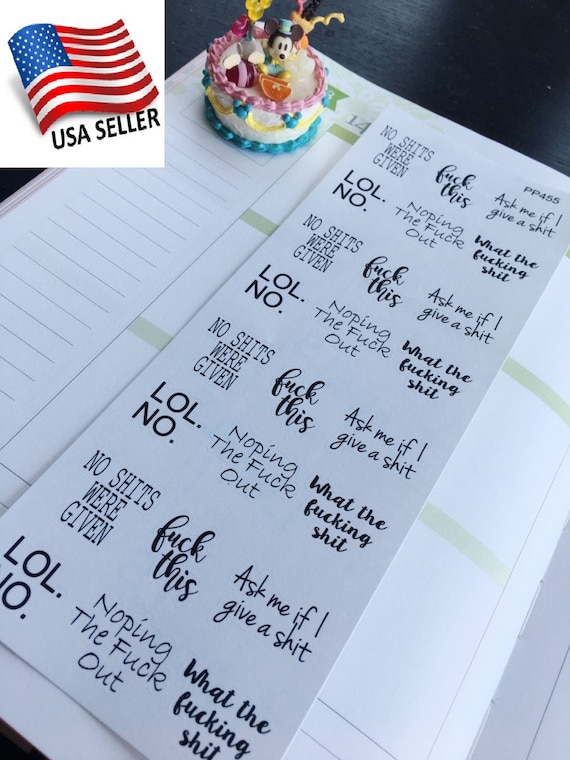 USA SELLER
14
PP455
NO SHITS
WERE
GIVEN
fuck
this
Ask me if I
give a shit
LOL.
NO.
Noping
The Fuck
Out
What the
fucking
shit
NO SHITS
WERE
GIVEN
fuck
this
Ask me if I
give a shit
LOL.
NO.
Noping
The Fuck
Out
What the
fucking
shit
NO SHITS
WERE
GIVEN
fuck
this
Ask me if I
give a shit
LOL.
NO.
Noping
The Fuck
Out
What the
fucking
shit
NO SHITS
WERE
GIVEN
fuck
this
Ask me if I
give a shit
LOL.
NO.
Noping
The Fuck
Out
What the
fucking
shit